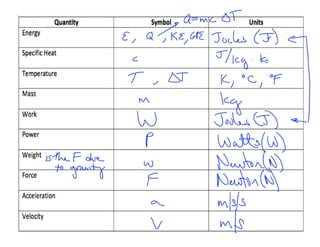 Quantity Symbol Units
Q=mcΔT
Energy E, Q, KE, GPE Joules (J)
Specific Heat c J/kg·K
Temperature T, ΔT K, °C, °F
Mass m kg
Work W Joules (J)
Power P Watts (W)
Weight is the F due to gravity w Newton (N)
Force F Newton (N)
Acceleration a m/s/s
Velocity V m/s